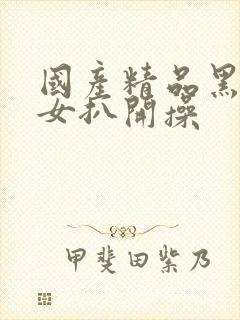 國產精品黑
女扒開操
甲斐田紫乃